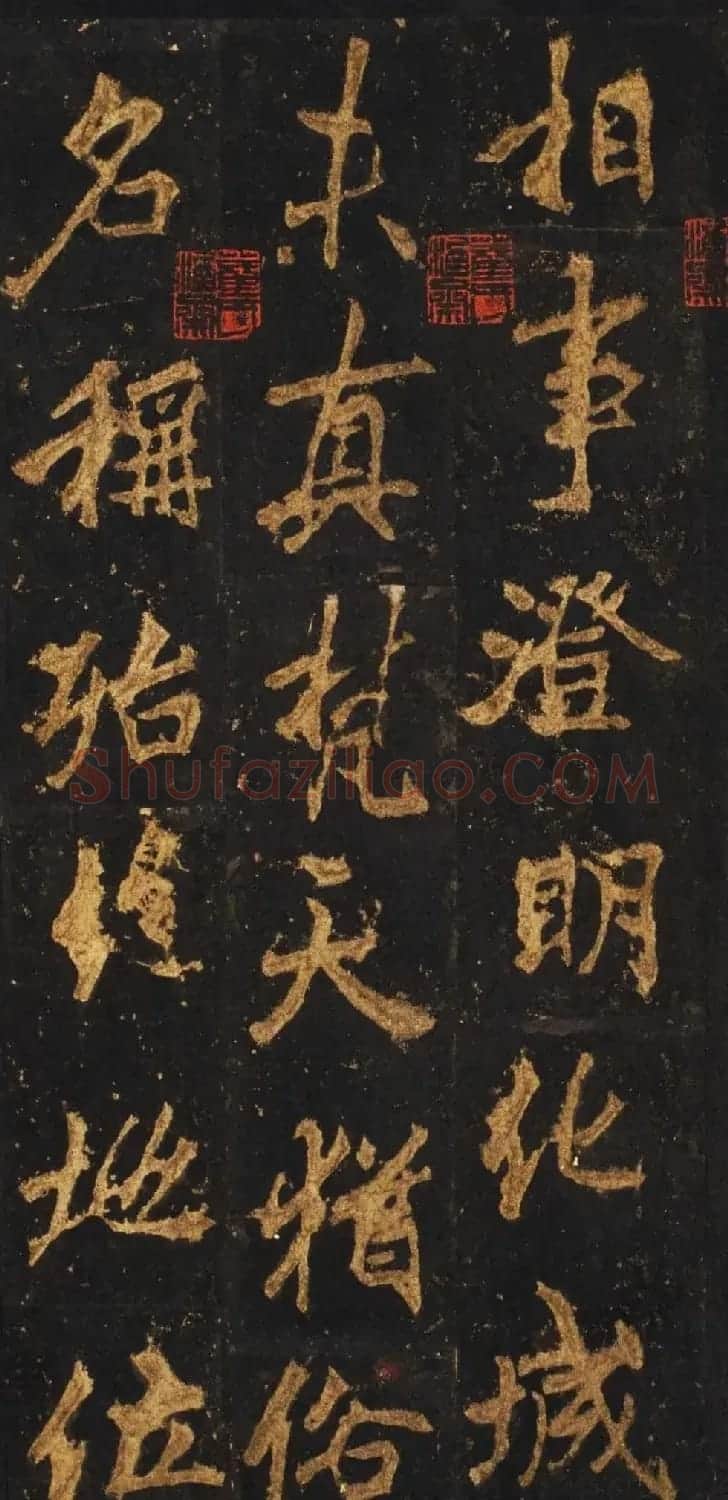 相事澄明化城
未真梵天猶俗
名稱殆地位
Shufaziliao.COM